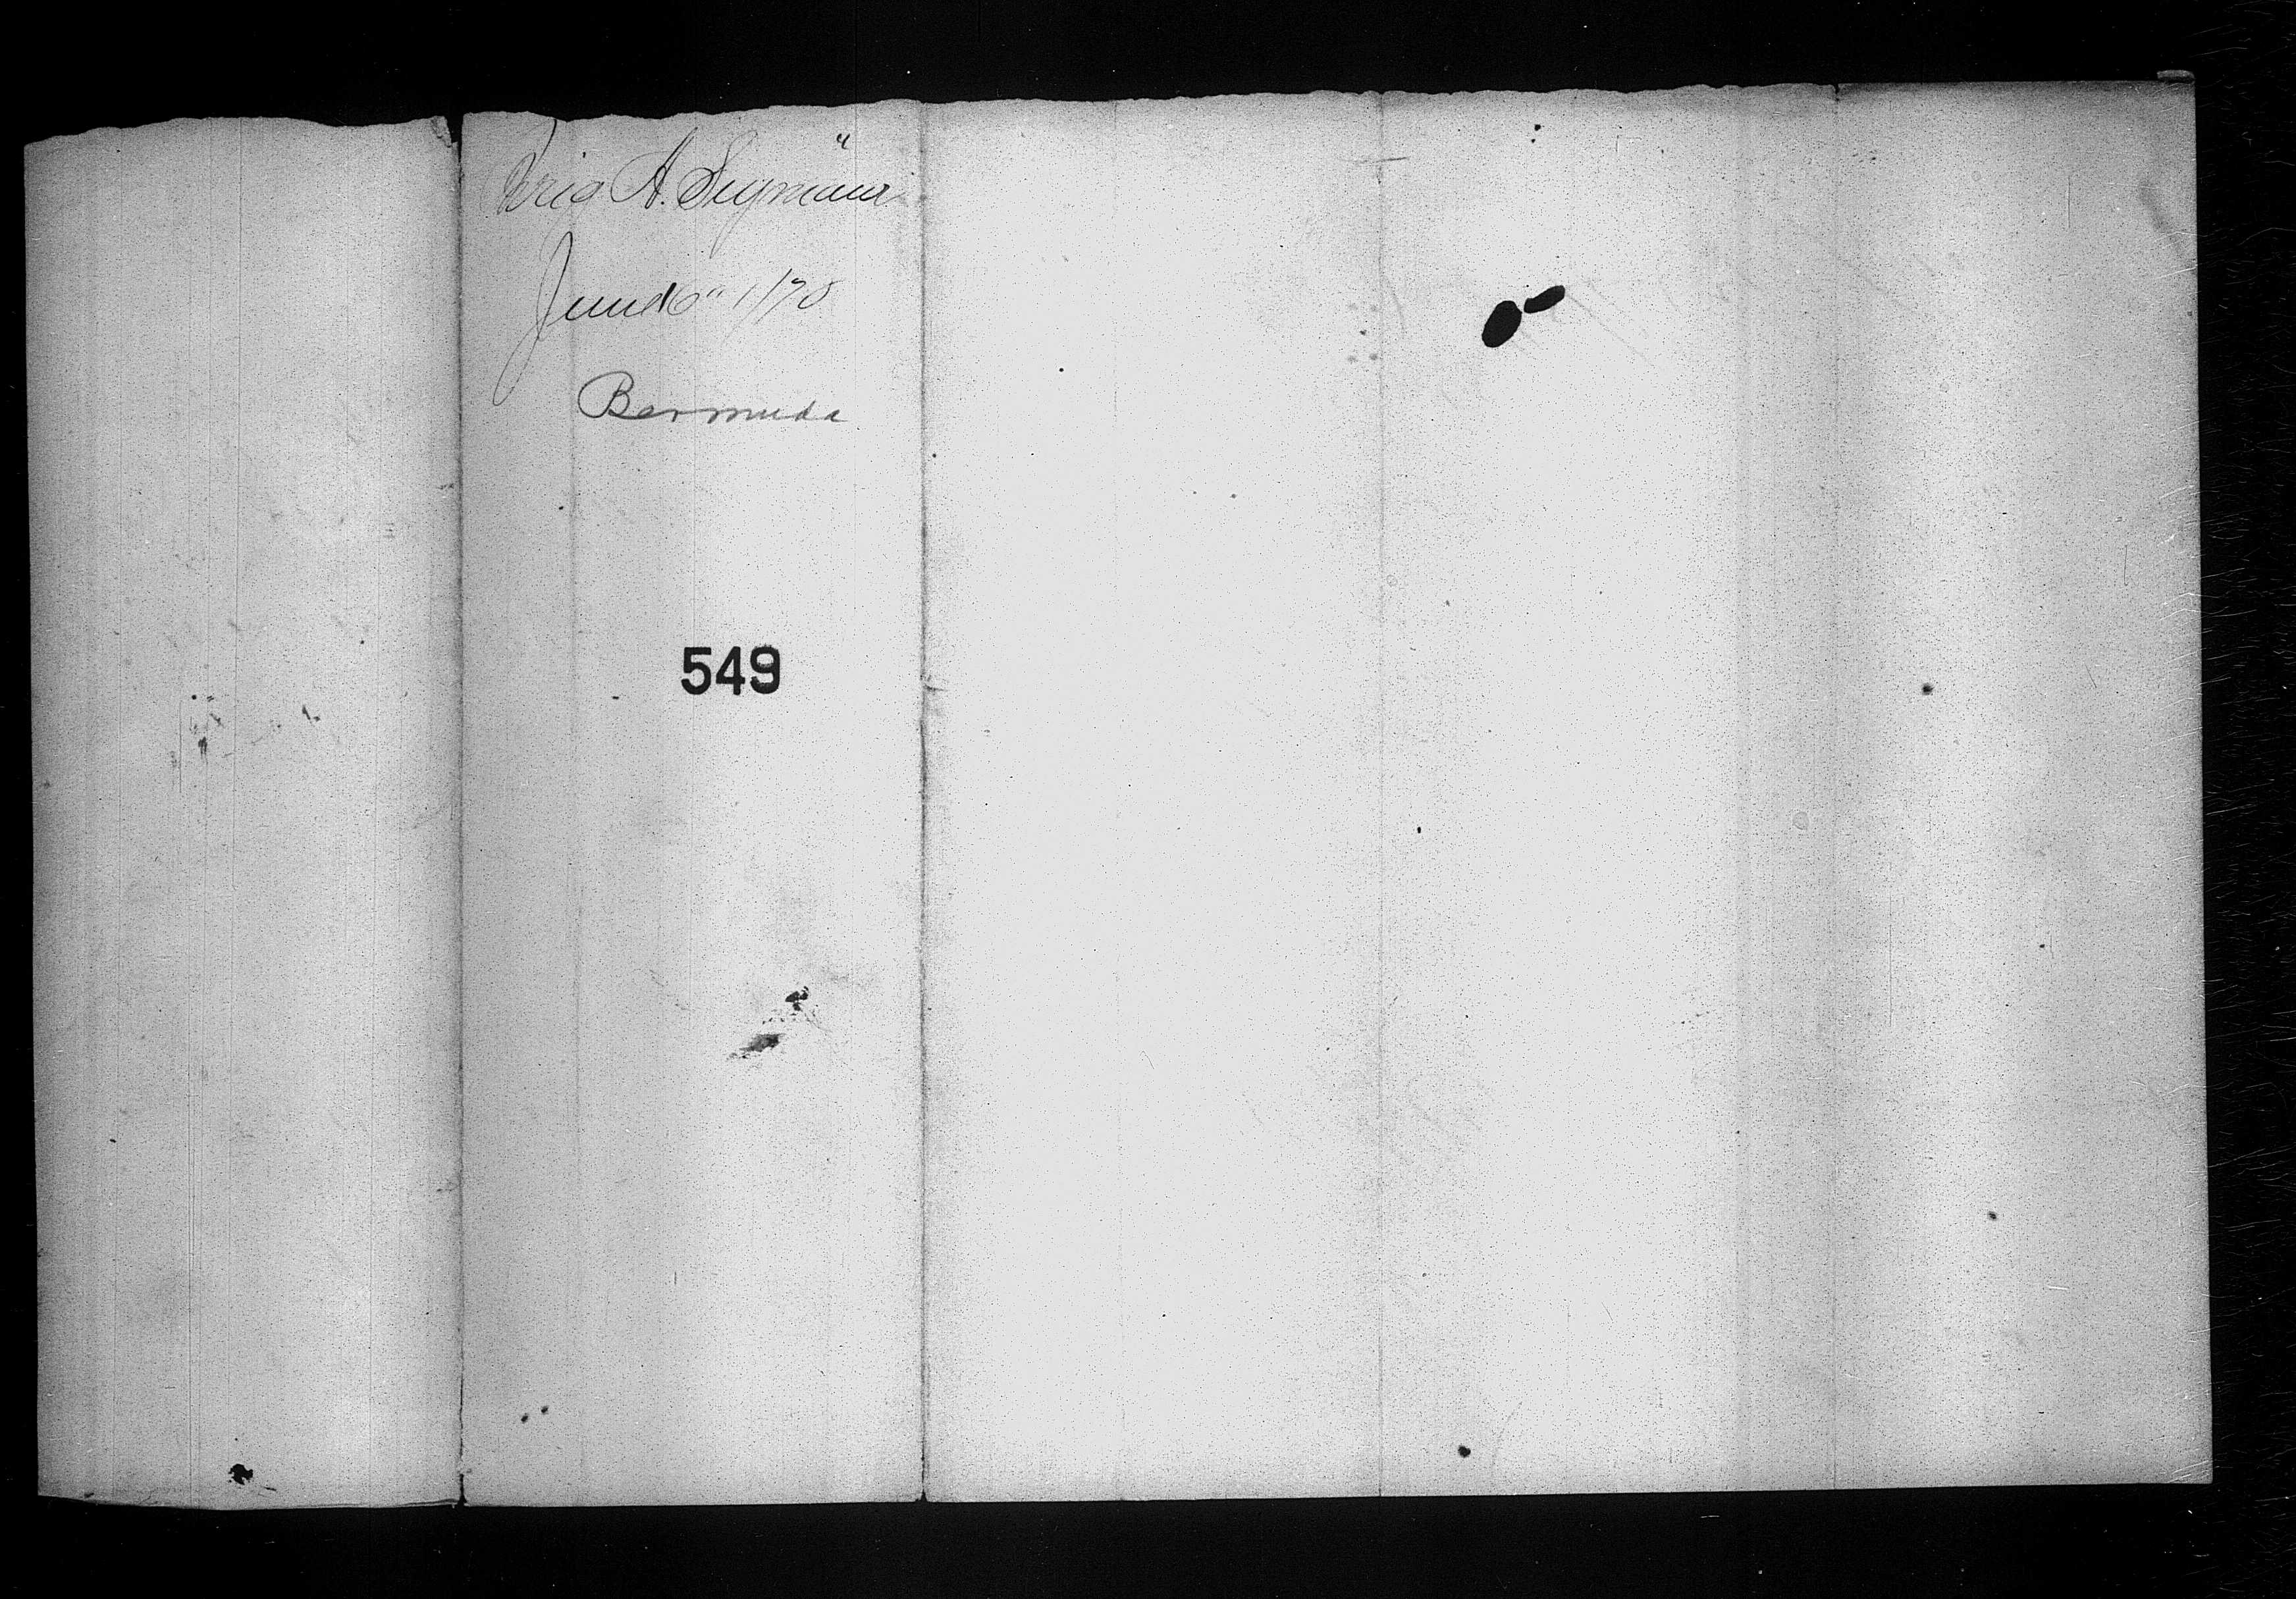 Brig A. Seymour "
June 6" 1/70
Bermuda
549